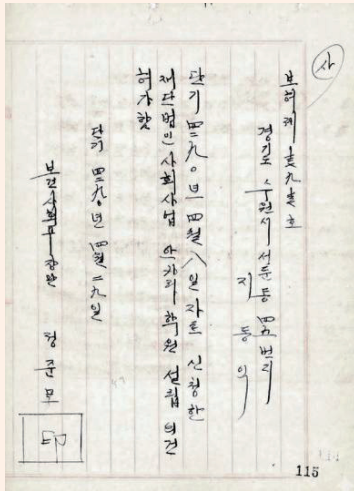 사
보허제 호
경기도 수원시 서둔동 四五번지
지동익
단기 四二九○년 四월 八일자로 신청한
재단법인 사회사업 학원 설립의 건
허가함
단기 四二九○년 四월 二九일
보건사회부장관 정준모
印
115